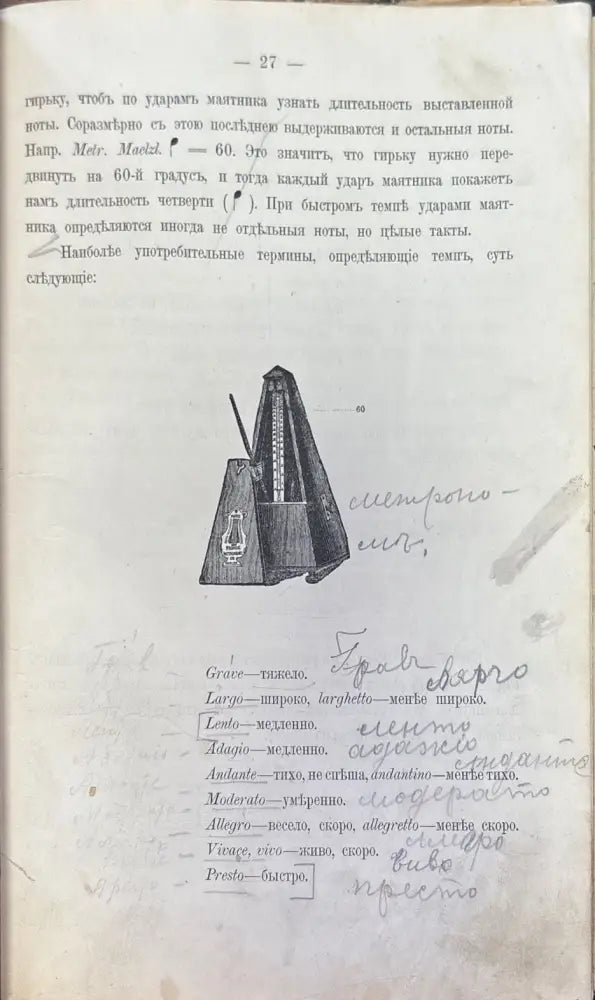 — 27 —
гирьку, чтобъ по ударамъ маятника узнать длительность выставленной
ноты. Соразмѣрно съ этою послѣднею выдерживаются и остальныя ноты.
Напр. Metr. Maelzl. = 60. Это значитъ, что гирьку нужно пере-
двинуть на 60-й градусъ, и тогда каждый ударъ маятника покажетъ
намъ длительность четверти ( ). При быстромъ темпѣ ударами маят-
ника опредѣляются иногда не отдѣльныя ноты, но цѣлые такты.
Наиболѣе употребительные термины, опредѣляющіе темпъ, суть
слѣдующіе:
60
метроно-
мъ,
Grave—тяжело. Гравъ
Largo—широко, larghetto—менѣе широко. лярго
Lento—медленно. ленто
Adagio—медленно. адажіо
Andante—тихо, не спѣша, andantino—менѣе тихо. анданте
Moderato—умѣренно. модерато
Allegro—весело, скоро, allegretto—менѣе скоро.
Vivace, vivo—живо, скоро. виво
Presto—быстро. престо